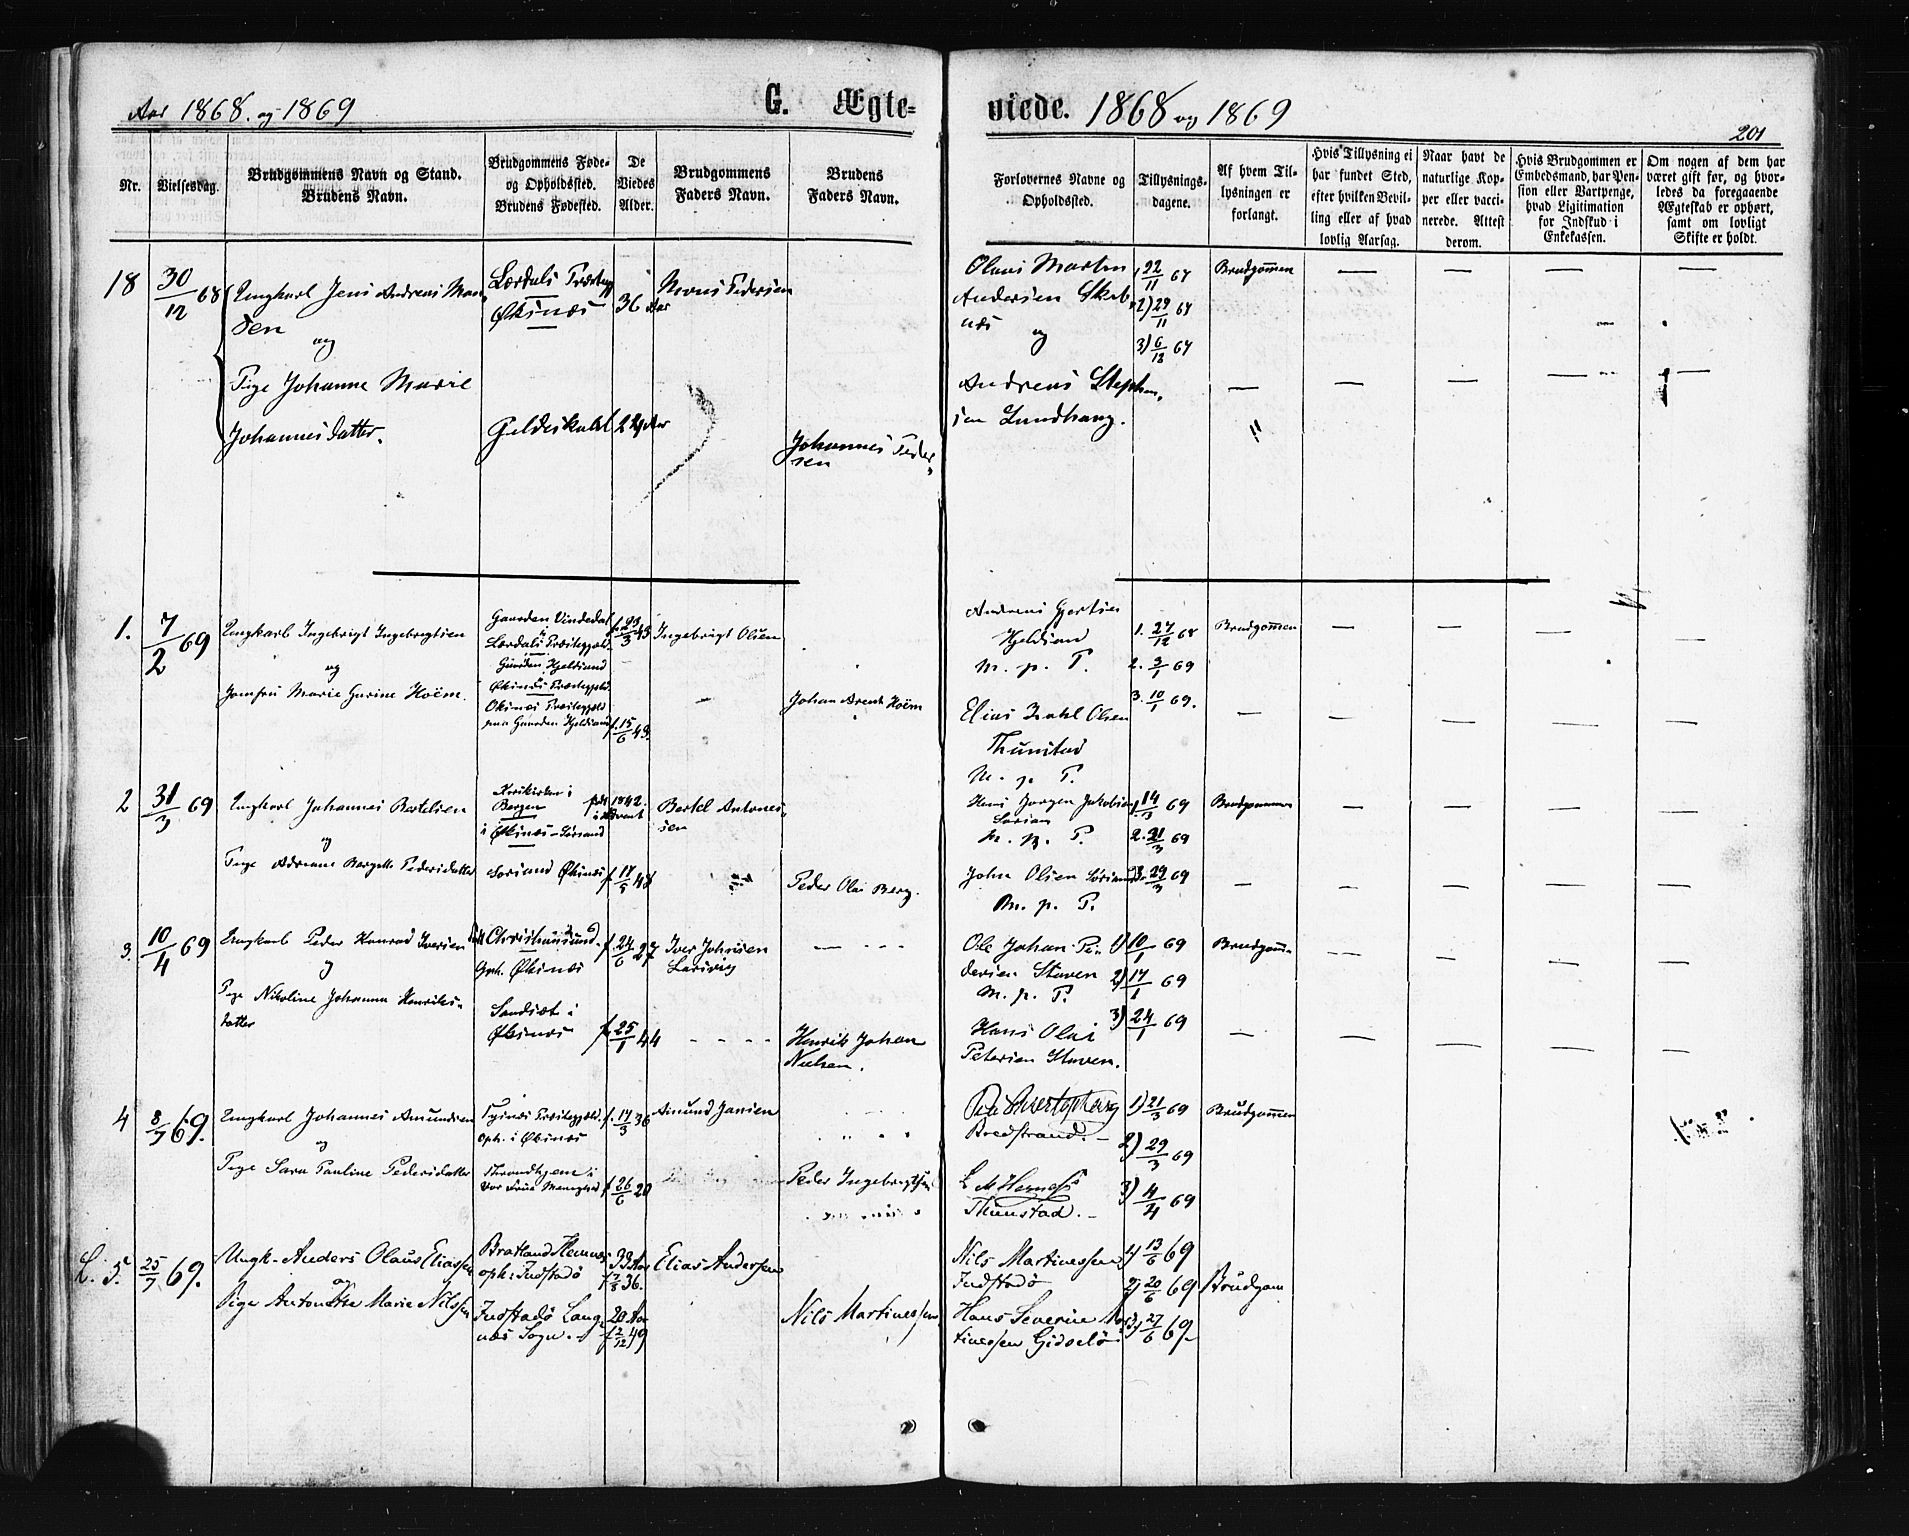 Aar 1868. og 1869
G. Ægte-
viede. 1868 og 1869
201
Nr.
Vielsesdag.
Brudgommens Navn og Stand.
Brudens Navn.
Brudgommens Føde-
og Opholdssted.
Brudens Fødested.
De
Viedes
Alder.
Brudgommens
Faders Navn.
Brudens
Faders Navn.
Forlovernes Navne og
Opholdssted.
Tillysnings-
dagene.
Af hvem Til-
lysningen er
forlangt.
Hvis Tillysning ei
har fundet Sted,
efter hvilken Bevil-
ling eller af hvad
lovlig Aarsag.
Naar havt de
naturlige Kop-
per eller vacci-
nerede. Attest
derom.
Hvis Brudgommen er
Embedsmand, har Pen-
sion eller Vartpenge,
hvad Ligitimation
for Indskud i
Enkekassen.
Om nogen af dem har
været gift før, og hvor-
ledes da foregaaende
Ægteskab er ophørt,
samt om lovligt
Skifte er holdt.
18
30/12 68
Ungkarl Jens Andreas Mon
sen
og
Pige Johanne Marie
Johannesdatter.
Lærdals Præstegj
Øksnæs
Geldeskaal
36 Aar
22 Aar
Mons Pedersen
Johannes Peder
sen
Olaus Martin
Andersen Skab
næs
og
Andreas Stephen
sen Lundhaug.
1) 22/11 67
2) 29/11 67
3) 6/12 67
Brudgommen
1.
7/2 69
Ungkarl Ingebrigt Ingebrigtsen
og
Jomfru Marie Gurine Hoëm.
Gaarden Vindedal
Lærdals Præstegjeld
Gaarden Gjeldsand
Øksnæs Præstegjeld.
Øksnæs Præstegjeld
paa Gaarden Gjeldsand
f. 23/3 43
f. 15/6 49.
Ingebrigt Olsen
Johan Arent Hoëm
Andreas Gjertsen
Kjeldsand
M. p. P.
Elias Dahl Olsen
Thunstad
M. p. P.
1. 27/12 68
2. 3/1 69
3. 10/1 69.
Brudgommen
2
31/3 69
Ungkarl Johannes Bertelsen
og
Pige Adriane Bergette Pedersdatter
Korskirken i
Bergen
i Øksnæs - Sørsand
Sørsand Øksnæs
født 1842
f. 17/5 48
Bertel Antones
sen
Peder Olai Berg.
Hans Jørgen Jakobsen
M. p. P.
John Olsen Sørsand
M. p. P.
1. 14/3 69
2. 21/3 69
3. 29/3 69
Brudgommen
3.
10/4 69
Ungkarl Peder Konrad Iversen
og
Pige Nikoline Johanna Henriks-
datter
født Christiansund
Oph. Øksnæs
Sandset i
Øksnæs
f. 24/6 27
f. 25/1 44
Iver Johnsen
Larsvig
Henrik Johan
Nielsen.
Ole Johan Pe-
dersen Staven
M. p. P.
Hans Olai
Petersen Staven.
1) 10/1 69
2) 17/1 69
3) 24/1 69
Brudgomm
4
8/7 69.
Ungkarl Johannes Amundsen
og
Pige Sara Pauline Pedersdatter
Præstegjeld.
Oph. i Øksnæs
Throndhjem i
Vor Frue Menighed
f. 17/3 36
f. 26/6 20
Amund Jansen
Peder Ingebrigtsen
Bredstrand.
Thunstad.
1) 21/3 69
2) 29/3 69
3) 4/4 69
Brudgommen
L. 5.
25/7 69.
Ungk. Anders Olaus Eliassen
og
Pige Antonette Marie Nilssen
Bratland Hemnæs
oph: Indstadø
Indstadø Lang-
næs Sogn.
33 Aar
f 7/8 36.
20 Aar
f 2/12 49
Elias Andersen
Nils Martinessen
Nils Martinessen
Indstadø
Hans Severin Mar
tinessen Gisselø
1) 13/6 69
2) 20/6 69
3) 27/6 69
Brudgom